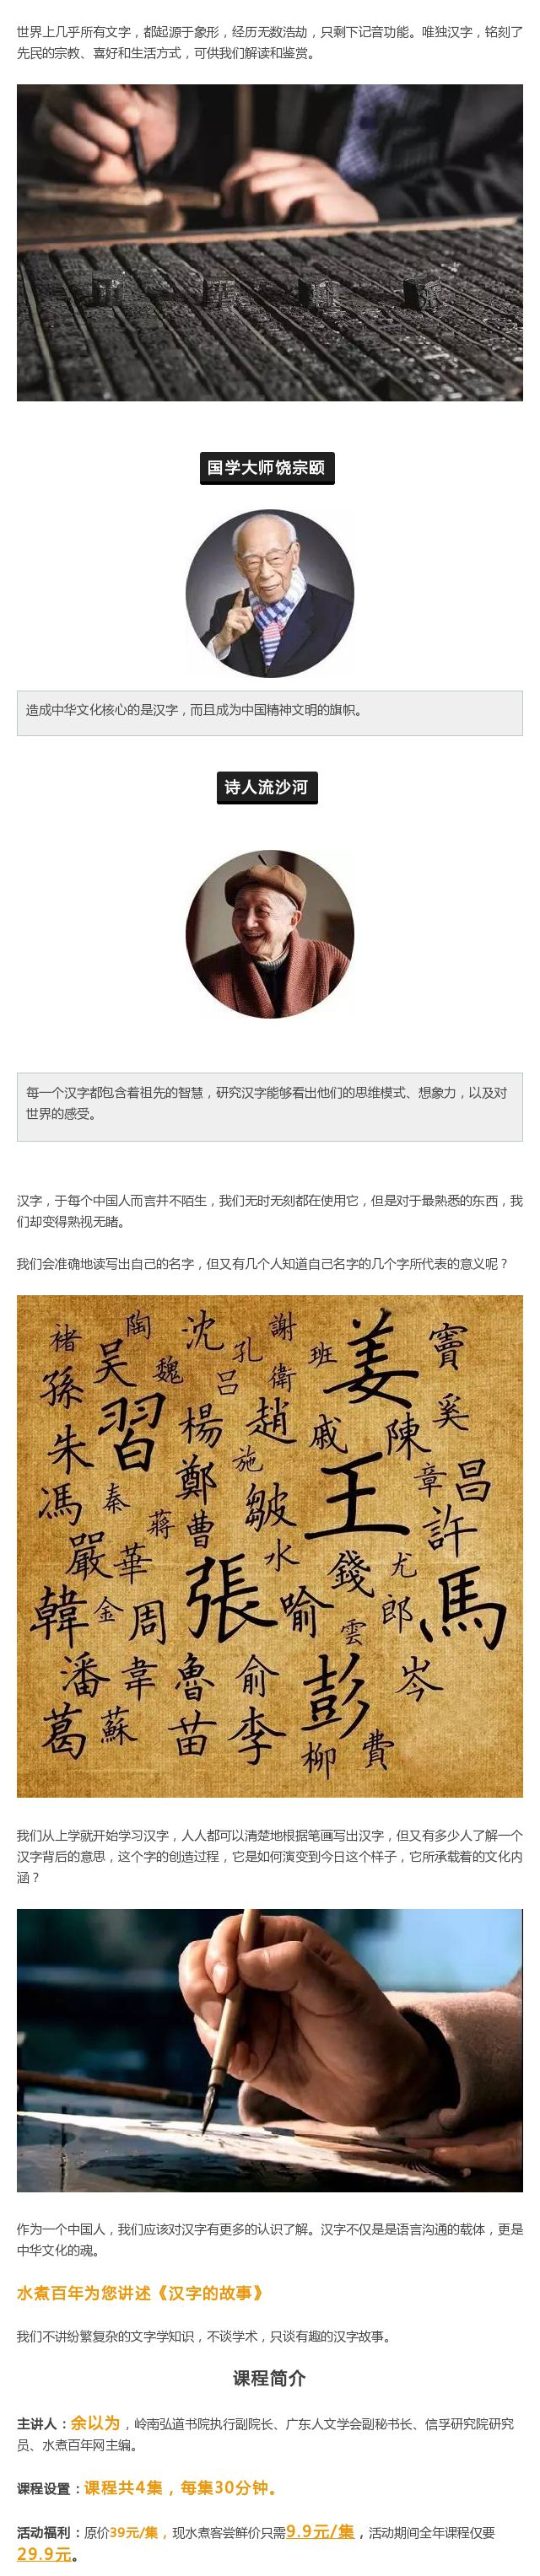 世界上几乎所有文字，都起源于象形，经历无数浩劫，只剩下记音功能。唯独汉字，铭刻了
先民的宗教、喜好和生活方式，可供我们解读和鉴赏。
国学大师饶宗颐
造成中华文化核心的是汉字，而且成为中国精神文明的旗帜。
诗人流沙河
每一个汉字都包含着祖先的智慧，研究汉字能够看出他们的思维模式、想象力，以及对
世界的感受。
汉字，于每个中国人而言并不陌生，我们无时无刻都在使用它，但是对于最熟悉的东西，我
们却变得熟视无睹。
我们会准确地读写出自己的名字，但又有几个人知道自己名字的几个字所代表的意义呢？
褚 陶 沈 孔 謝 班 姜 竇
孫 吳 魏 呂 衛 奚
朱 習 楊 趙 戚 陳
馮 秦 鄭 施 皺 王 章 昌
嚴 華 蔣 曹 水 錢 尤 許
韓 金 周 張 喻 雲 郎 馬
潘 韋 魯 俞 彭 岑
葛 蘇 苗 李 柳 費
我们从上学就开始学习汉字，人人都可以清楚地根据笔画写出汉字，但又有多少人了解一个
汉字背后的意思，这个字的创造过程，它是如何演变到今日这个样子，它所承载着的文化内
涵？
作为一个中国人，我们应该对汉字有更多的认识了解。汉字不仅是是语言沟通的载体，更是
中华文化的魂。
水煮百年为您讲述《汉字的故事》
我们不讲纷繁复杂的文字学知识，不谈学术，只谈有趣的汉字故事。
课程简介
主讲人：余以为，岭南弘道书院执行副院长、广东人文学会副秘书长、信孚研究院研究
员、水煮百年网主编。
课程设置：课程共4集，每集30分钟。
活动福利：原价39元/集，现水煮客尝鲜价只需9.9元/集，活动期间全年课程仅要
29.9元。